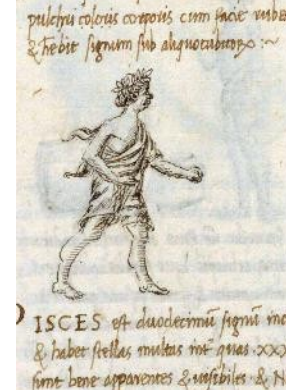 pulchri coloris corporis cum facie rube
& hebit signum sub aliquo cubitoꝝ :~
PISCES est duodecimū signū in
& habet stellas multas int̄ quas ·xxx
sunt bene apparentes & uisibiles & N